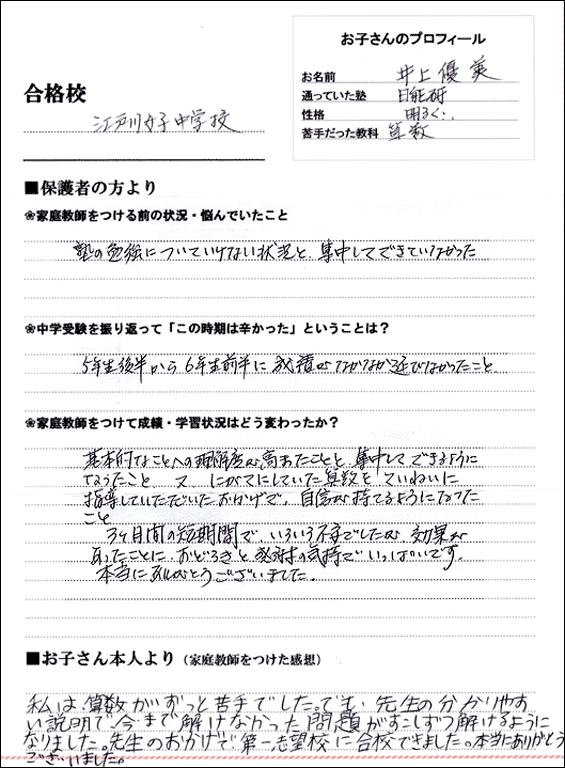 お子さんのプロフィール
お名前 井上優美
通っていた塾 日能研
性格 明るく、
苦手だった教科 算数
合格校
江戸川女子中学校
■保護者の方より
❀家庭教師をつける前の状況・悩んでいたこと
塾の勉強についていけない状況と、集中してできていなかった
❀中学受験を振り返って「この時期は辛かった」ということは？
5年生後半から6年生前半に成績がなかなか延びなかったこと
❀家庭教師をつけて成績・学習状況はどう変わったか？
基本的なことへの理解度が高まったことと、集中してできるように
なったこと 又 にがてにしていた算数を ていねいに
指導していただいたおかげで、自信が持てるようになった
こと
3ヶ月間の短期間で、いろいろ不安でしたが、効果が
あったことに、おどろきと感謝の気持でいっぱいです。
本当にありがとうございました。
■お子さん本人より（家庭教師をつけた感想）
私は、算数がずっと苦手でした。でも、先生の分かりやす
い説明で、今まで解けなかった問題がすこしずつ解けるように
なりました。先生のおかげで第一志望校に合校できました。本当にありがとう
ございました。